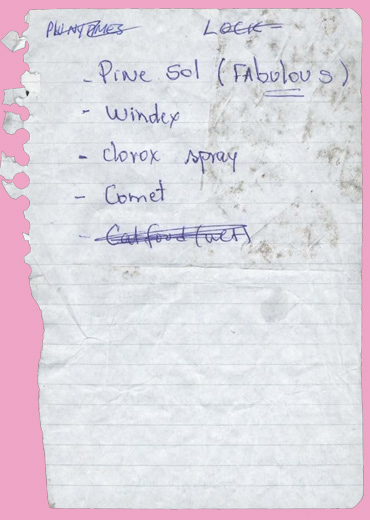 LOCK
- Pine Sol (FAbulous)
- Windex
- Clorox spray
- Comet
- Cat food (wet)